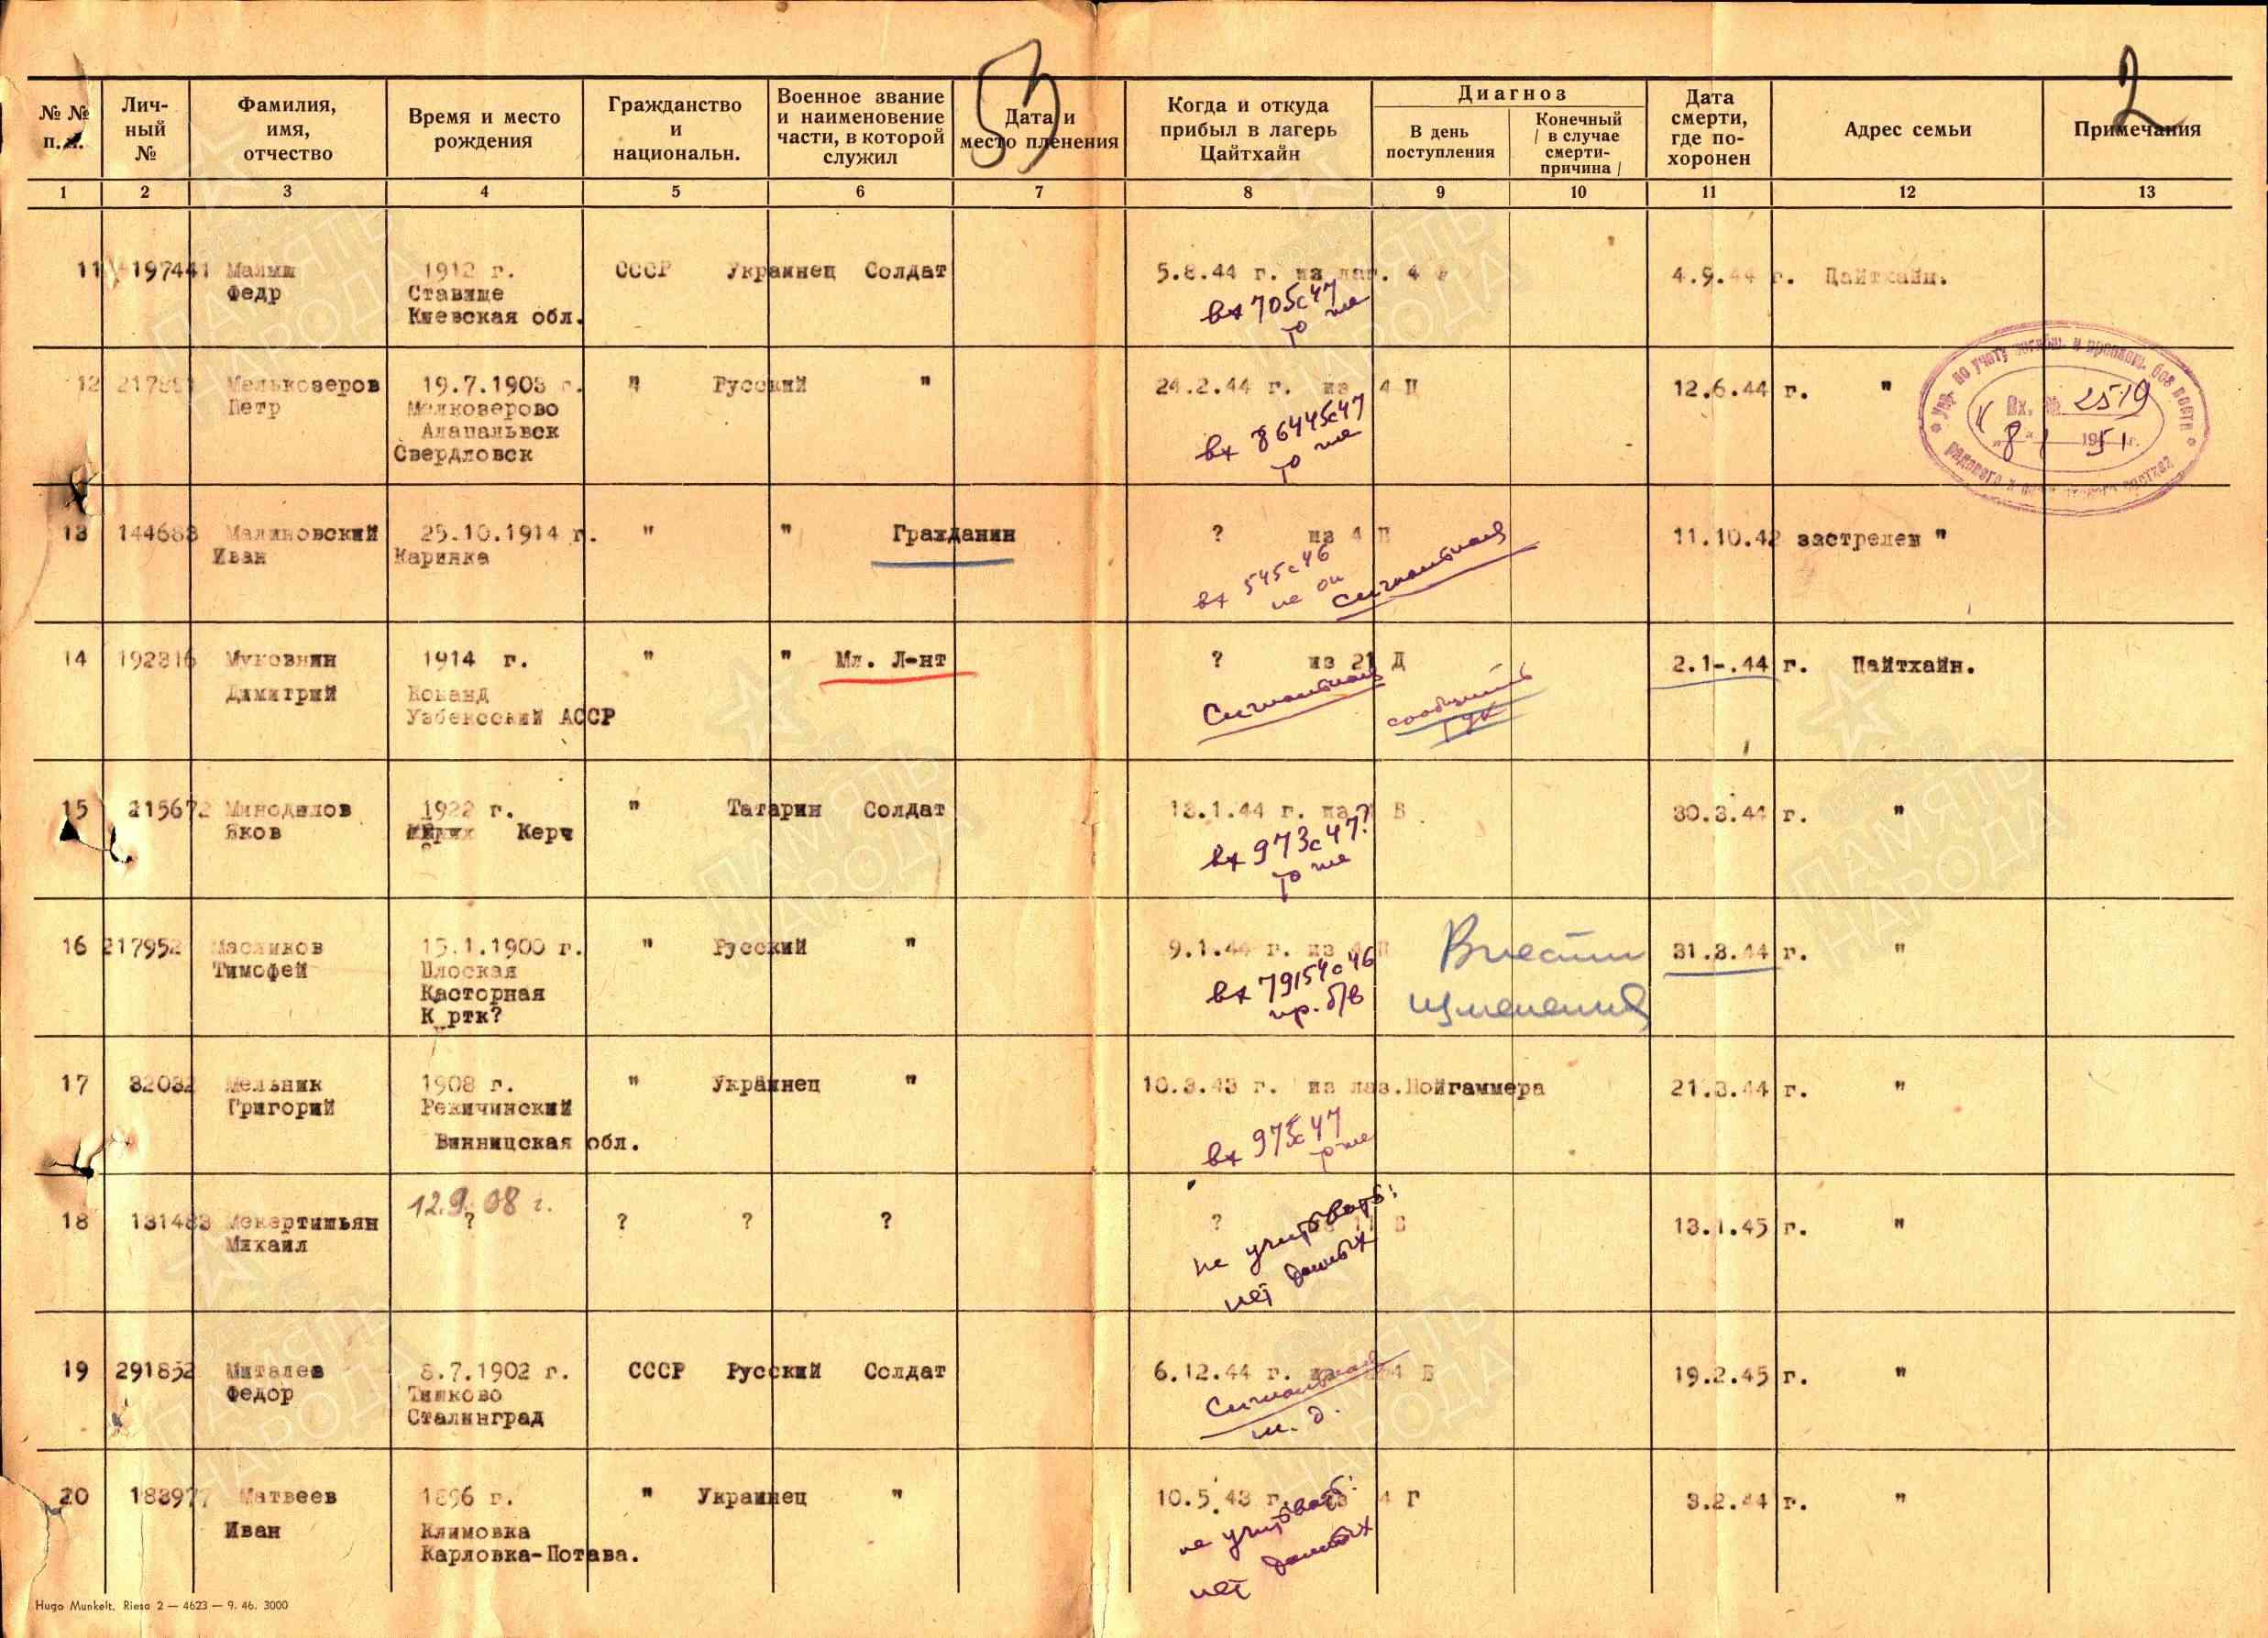 53
2
№ № п.п.
Лич-ный №
Фамилия, имя, отчество
Время и место рождения
Гражданство и национальн.
Военное звание и наименовение части, в которой служил
Дата и место пленения
Когда и откуда прибыл в лагерь Цайтхайн
Диагноз
В день поступления
Конечный / в случае смерти-причина /
Дата смерти, где по-хоронен
Адрес семьи
Примечания
1 2 3 4 5 6 7 8 9 10 11 12 13
11 197441 Малыш 1912 г. СССР Украинец Солдат 5.8.44 г. из лаг. 4 4.9.44 г. Цайтхайн.
Федр Ставище
Киевская обл.
вх 705с47
то же
12 Мелькозеров 19.7.1903 г. " Русский " 24.2.44 г. из 4 Ц 12.6.44 г. "
Петр Малкозерово
Алапальвск
Свердловск
вх 86445с47
то же
Упр. по учету погибш. и пропавш. без вести
Вх. № 2519
"8" 1 1951 г.
рядового и состава
13 144688 Малиновский 25.10.1914 г. " " Гражданин ? из 4 11.10.42 застрелен "
Иван Каринка
вх 545с46
не он
сигнальная
14 192316 Муковнин 1914 г. " " Мл. Л-нт ? из 21 Д 2.1-.44 г. Цайтхайн.
Димитрий Коканд
Узбексский АССР
Сигнальная
сообщить
ГУК
15 215672 Миноделов 1922 г. " Татарин Солдат 13.1.44 г. из В 30.3.44 г. "
Яков Керч
вх 973с47?
то же
16 217952 Масликов 15.1.1900 г. " Русский " 9.1.44 г. из 31.3.44 г. "
Тимофей Плоская
Касторная
К ртк?
вх 79154с46
пр. б/в
Внести
изменения
17 32032 Мельник 1908 г. " Украинец " 10.3.43 г. из лаз.Нойгаммера 21.3.44 г. "
Григорий Рекичинский
Винницская обл.
вх 975с47
то же
12.9.08 г.
18 131483 Мекертишьян ? ? ? ? ? 13.1.45 г. "
Михаил
не учитывать:
нет данных
19 291852 Миталев 8.7.1902 г. СССР Русский Солдат 6.12.44 г. из 4 В 19.2.45 г. "
Федор Тишково
Сталинград
Сигнальная
н. д.
20 183977 Матвеев 1896 г. " Украинец " 10.5.43 г. из 4 Г 3.2.44 г. "
Иван Климовка
Карловка-Потава.
не учитывать:
нет данных
Hugo Munkelt, Riesa 2 — 4623 — 9. 46. 3000
ПАМЯТЬ НАРОДА
ПАМЯТЬ НАРОДА
ПАМЯТЬ НАРОДА
ПАМЯТЬ НАРОДА
ПАМЯТЬ НАРОДА
ПАМЯТЬ НАРОДА